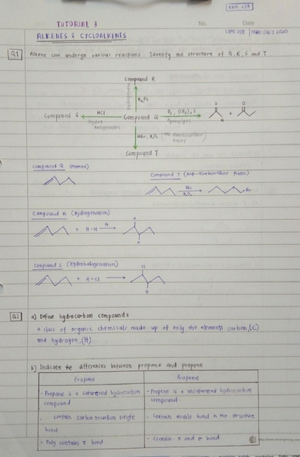 CHM 138
TUTORIAL 3
No.
Date
ALKENES & CYCLOALKENES
Q1
Alkene can undergo various reactions. Identify the structure of Q, R, S and T
Compound R
Compound S
HCl
Compound Q
Compound T
Compound Q (Alkene)
Compound T (Anti-Markovnikov Rules)
HBr
Compound R (Hydrogenation)
+ H-H
Compound S (Hydrohalogenation)
+ H-Cl
a) Define hydrocarbon compounds
a class of organic chemicals made up of only the elements carbon, (C)
and hydrogen, (H)
b) Indicate the differences between propane and propene
Propane
Propene
- Propane is a saturated hydrocarbon
compound
- Propene is a unsaturated hydrocarbon
compound
carbon single
bond
double bond in the structure
- Only contains σ bond
- Contain π and σ bond